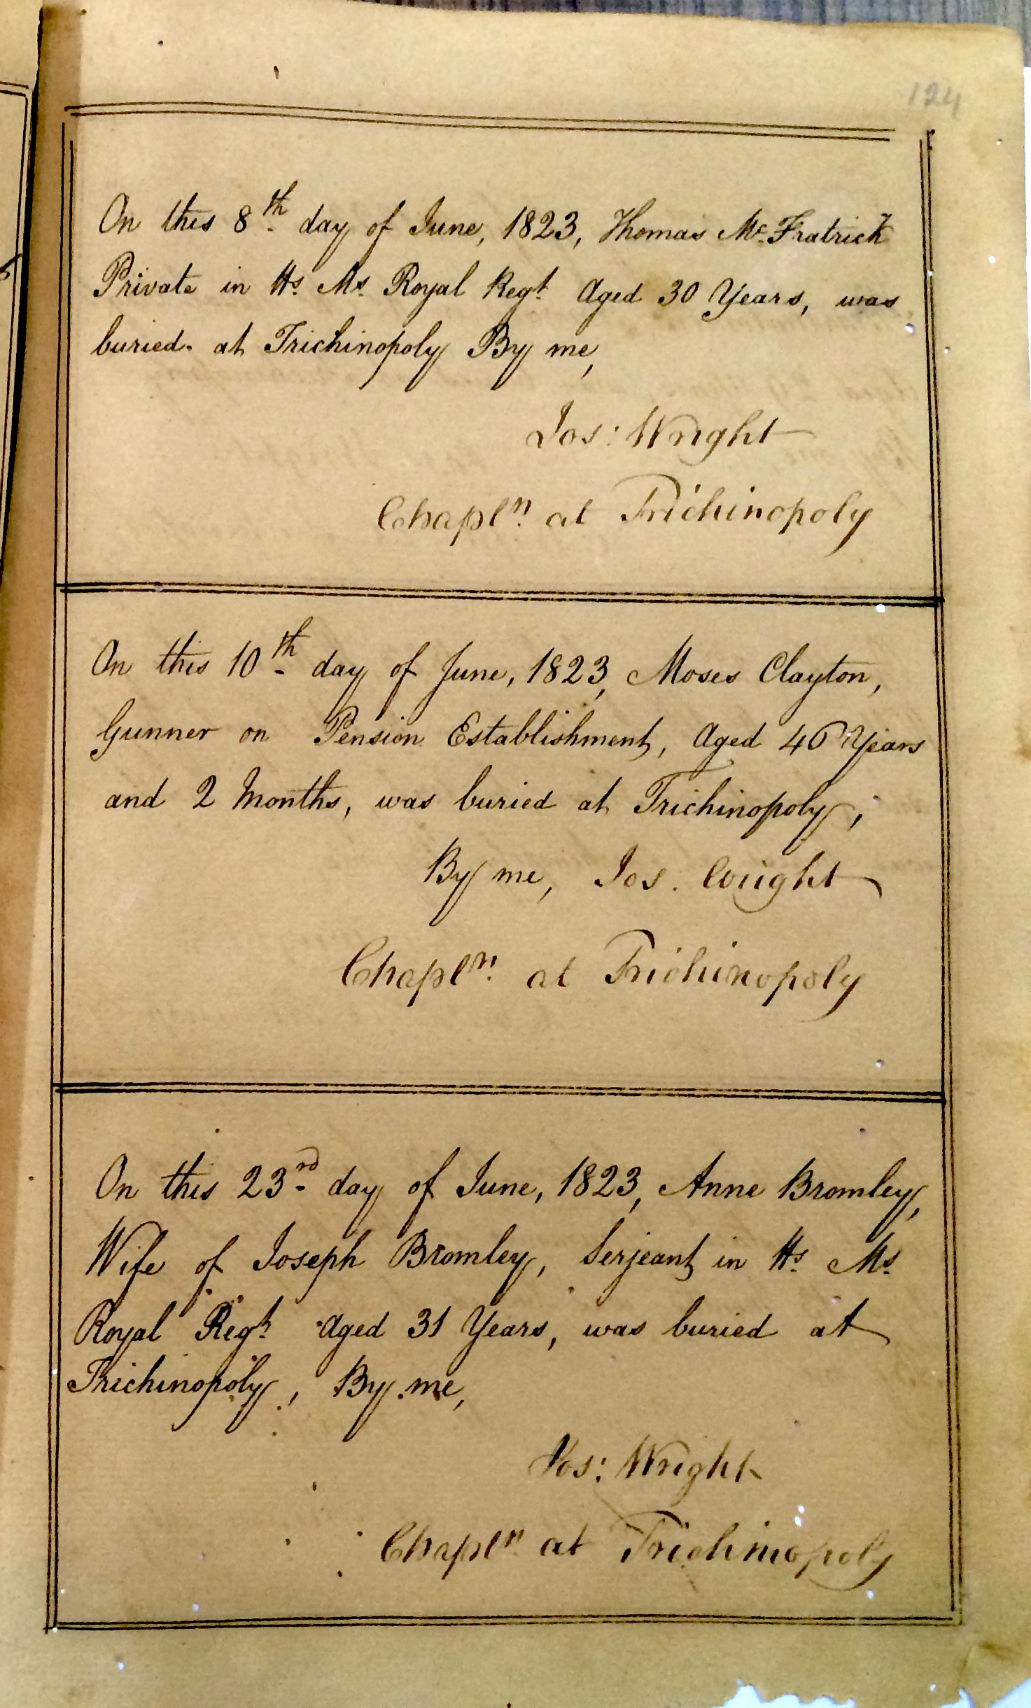 124
On this 8th day of June, 1823, Thomas Mc. Fratrick
Private in Hs. Ms. Royal Regt. Aged 30 Years, was
buried. at Trichinopoly By me,
Jos: Wright
Chapln. at Trichinopoly
On this 10th day of June, 1823, Moses Clayton,
Gunner on Pension Establishment, Aged 46 Years
and 2 Months, was buried at Trichinopoly,
By me, Jos. Wright
Chapln. at Trichinopoly
On this 23rd day of June, 1823, Anne Bromley,
Wife of Joseph Bromley, Serjeant in Hs. Ms.
Royal Regt. Aged 31 Years, was buried at
Trichinopoly, By me,
Jos: Wright
Chapln. at Trichinopoly